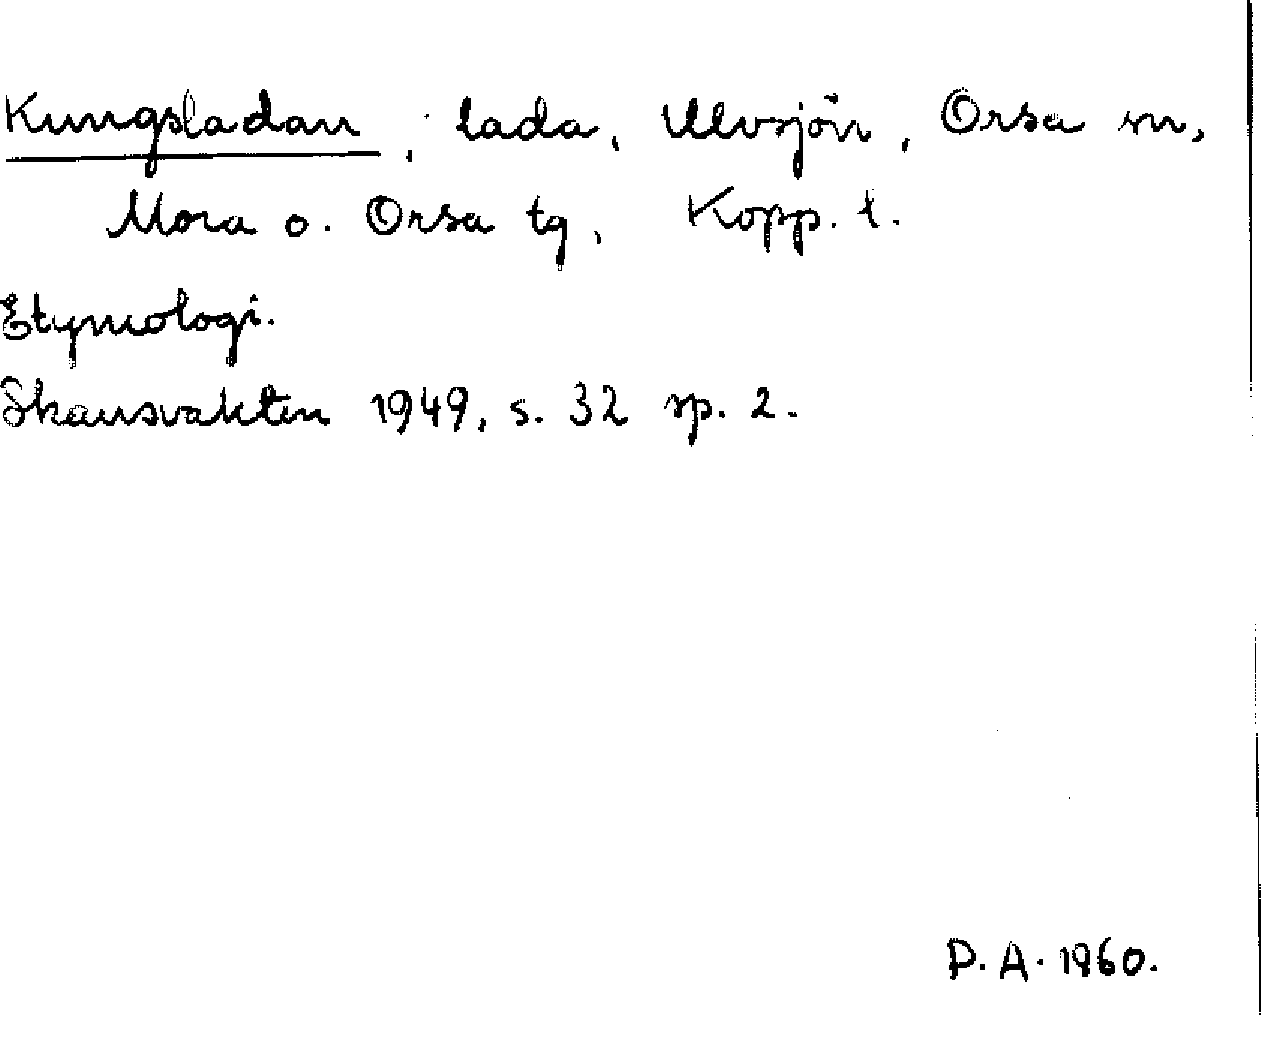 Kungsladan, lada, Ulvsjön, Orsa sn,
Mora o. Orsa tg, Kopp. l.
Etymologi.
Skansvakten 1949, s. 32 sp. 2.
D. A. 1960.